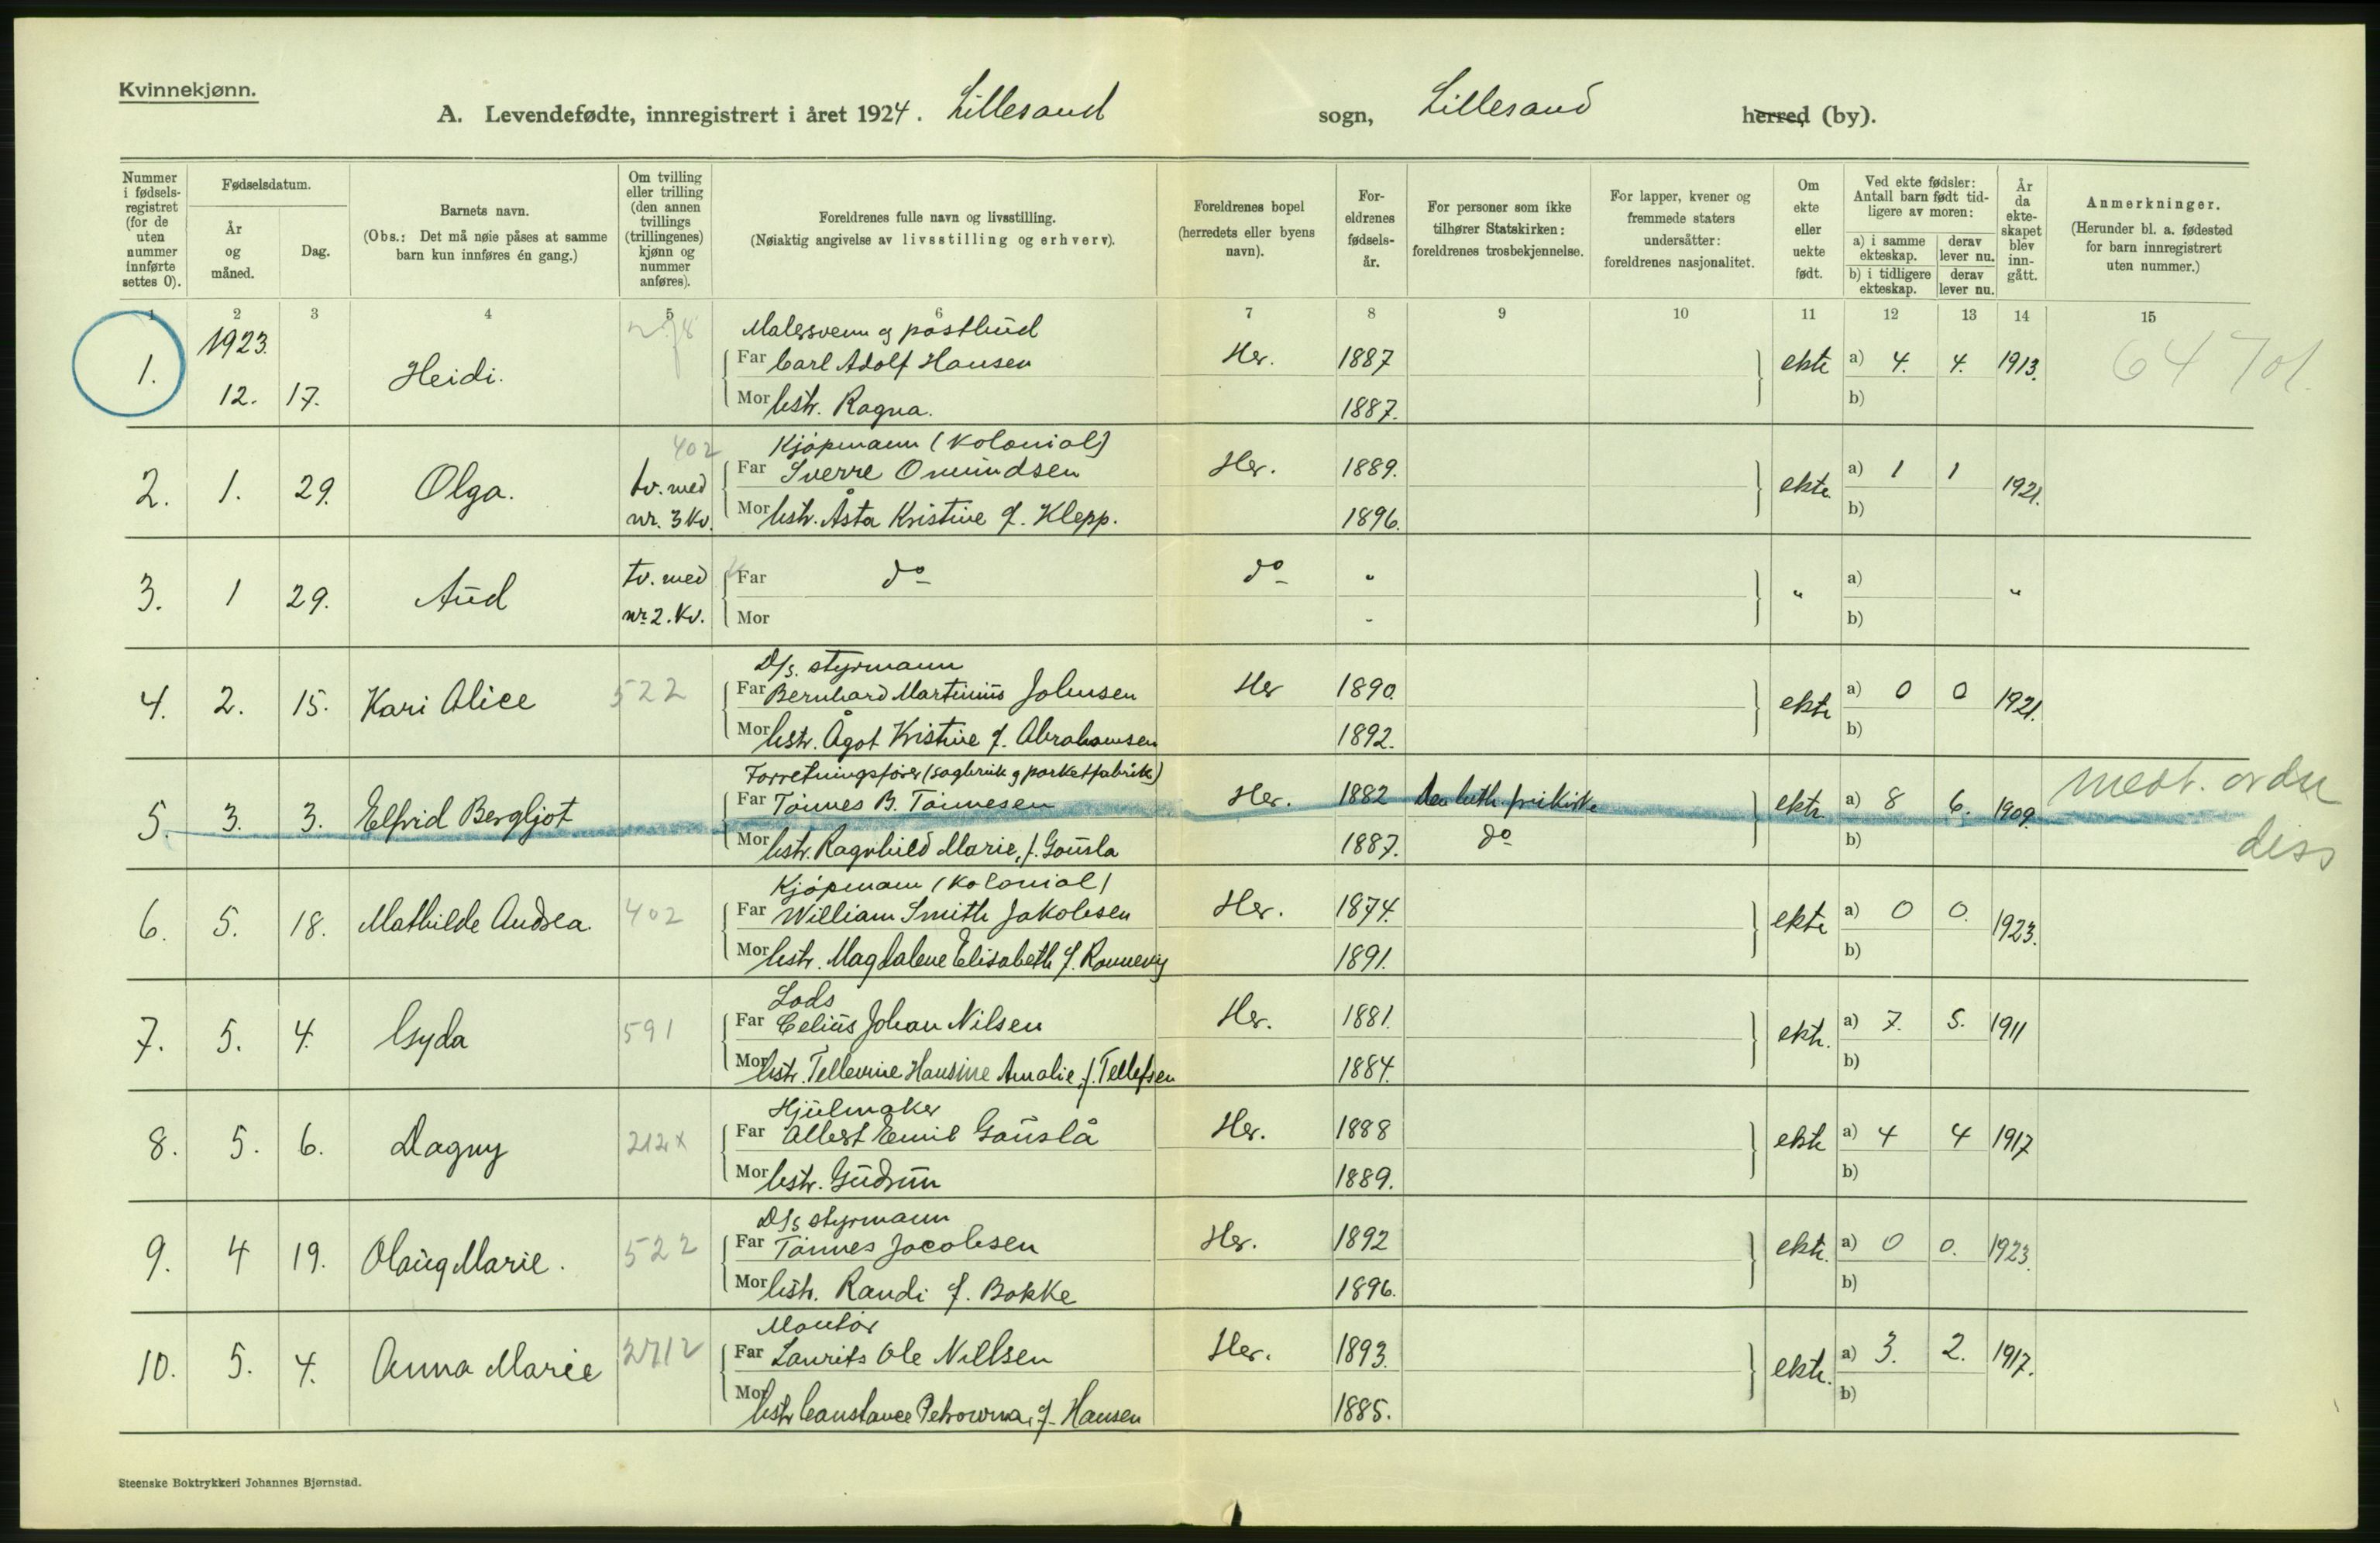 Kvinnekjønn.
A. Levendefødte, innregistrert i året 1924. Lillesand sogn, Lillesand herred (by).
Nummer i fødselsregistret (for de uten nummer innførte settes 0).
Fødselsdatum.
År og måned.
Dag.
Barnets navn.
(Obs.: Det må nøie påses at samme barn kun innføres én gang.)
Om tvilling eller trilling (den annen tvillings (trillingenes) kjønn og nummer anføres).
Foreldrenes fulle navn og livsstilling.
(Nøiaktig angivelse av livsstilling og erhverv).
Foreldrenes bopel (herredets eller byens navn).
Foreldrenes fødselsår.
For personer som ikke tilhører Statskirken: foreldrenes trosbekjennelse.
For lapper, kvener og fremmede staters undersåtter: foreldrenes nasjonalitet.
Om ekte eller uekte født.
Ved ekte fødsler: Antall barn født tidligere av moren:
a) i samme ekteskap. derav lever nu.
b) i tidligere ekteskap. derav lever nu.
År da ekteskapet blev inngått.
Anmerkninger.
(Herunder bl. a. fødested for barn innregistrert uten nummer.)
1 2 3 4 5 6 7 8 9 10 11 12 13 14 15
1923. Malersvenn og postbud
1. 12. 17. Heidi. Far Carl Adolf Hansen Her. 1887 ekte a) 4. 4. 1913. 64 701.
Mor Hstr. Ragna. 1887. b)
402 Kjøpmann (Kolonial)
2. 1. 29. Olga. tv. med nr. 3 Kv. Far Sverre Omundsen Her. 1889. ekte. a) 1 1 1921.
Mor Hstr. Åsta Kristine f. Klepp. 1896. b)
3. 1 29. Aud tv. med nr. 2. Kv. Far do do " " a) "
Mor - b)
D/s. styrmann
4. 2. 15. Kari Alice 522 Far Bernhard Martinius Johnsen Her 1890. ekte a) 0 0 1921.
Mor Hstr. Ågot Kristine f. Abrahamsen 1892. b)
Forretningsfører (sagbruk og parketfabrik)
5. 3. 3. Elfrid Bergljot Far Tønnes B. Tønnesen Her. 1882 Den luth. frikirke ekte a) 8 6. 1909. diss
Mor Hstr. Ragnhild Marie, f. Gausla 1887. do b)
Kjøpmann (Kolonial)
6. 5. 18. Mathilde Andrea. 402 Far William Smith Jakobsen Her. 1874. ekte a) 0 0. 1923.
Mor Hstr. Magdalene Elisabeth f. Rønnevig 1891. b)
Lods
7. 5. 4. Gyda 591 Far Celius Johan Nilsen Her. 1881. ekte. a) 7. 5. 1911
Mor Hstr. Tellevine Hansine Amalie, f. Tellefsen 1884. b)
Hjulmaker
8. 5. 6. Dagny 212 x Far Albert Emil Gauslå Her. 1888 ekte a) 4 4 1917
Mor Hstr. Gudrun 1889. b)
D/s styrmann
9. 4 19. Olaug Marie. 522 Far Tønnes Jacobsen Her. 1892 ekte. a) 0 0. 1923.
Mor Hstr. Randi f. Bakke 1896. b)
Montør
10. 5. 4. Anna Marie 2712 Far Laurits Ole Nilsen Her. 1893. ekte. a) 3. 2. 1917.
Mor Hstr Constance Petrowna, f. Hansen 1885. b)
Steenske Boktrykkeri Johannes Bjørnstad.